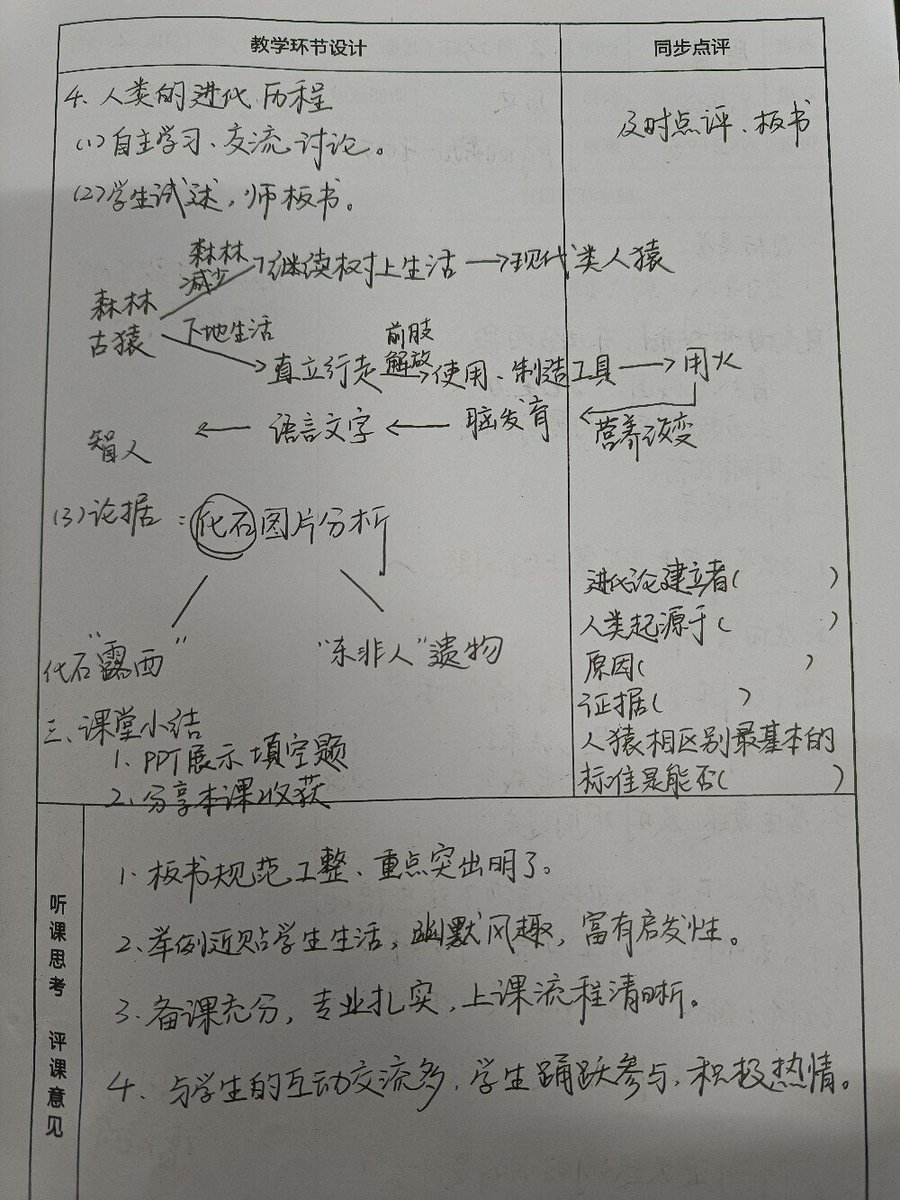 教学环节设计
同步点评
4、人类的进化历程
(1)自主学习、交流、讨论。
(2)学生试述，师板书。
及时点评、板书
森林古猿
森林减少
继续树上生活 → 现代类人猿
下地生活
直立行走
前肢解放
→ 使用、制造工具 → 用火
智人 ← 语言文字 ← 脑发育 ← 营养改变
(3)论据：化石图片分析
化石“露西”
“东非人”遗物
三、课堂小结
1、PPT展示填空题
2、分享本课收获
进化论建立者(　　)
人类起源于(　　)
原因(　　)
证据(　　)
人猿相区别最基本的
标准是能否(　　)
听课思考 评课意见
1、板书规范工整、重点突出明了。
2、举例近贴学生生活，幽默风趣，富有启发性。
3、备课充分，专业扎实，上课流程清晰。
4、与学生的互动交流多，学生踊跃参与，积极热情。